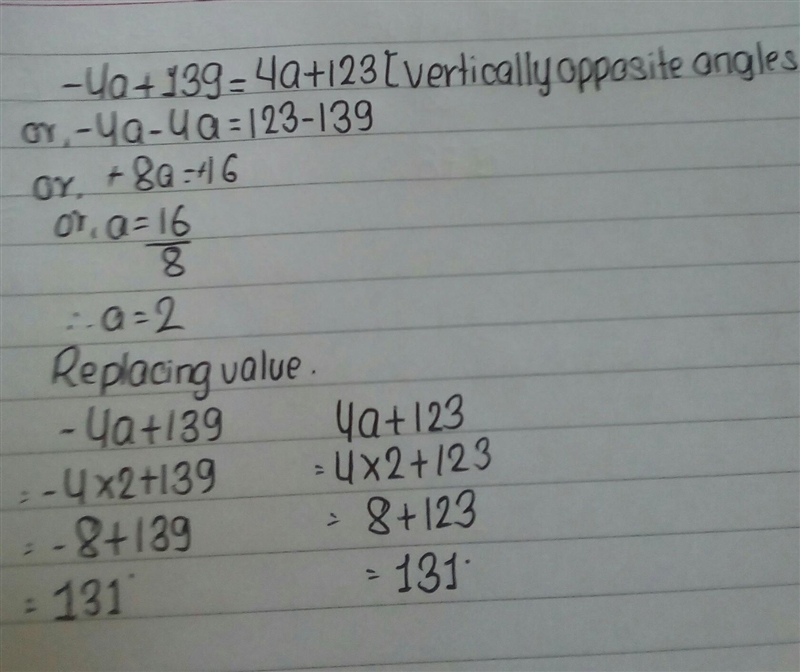 -4a+139=4a+123[vertically opposite angles
or, -4a-4a=123-139
or, +8a=+16
or, a=16/8
∴a=2
Replacing value.
-4a+139 4a+123
=-4×2+139 =4×2+123
=-8+139 = 8+123
=131° =131°